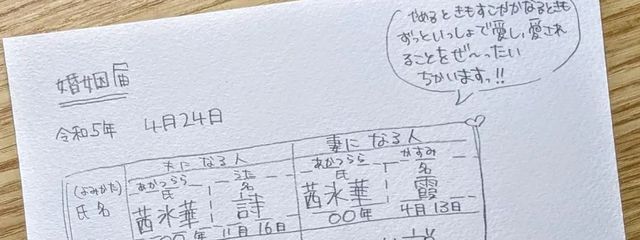 やめるときもすこやかなるときも
ずっといっしょで愛し、愛され
ることをぜ〜ったい
ちかいますっ!!
婚姻届
令和5年 4月24日
夫になる人 妻になる人
(よみかた) あかつらら あかつらら かすみ
氏名 氏 名 氏 名
茜氷華 詩 茜氷華 霞
〇〇年 11月16日 〇〇年 4月13日